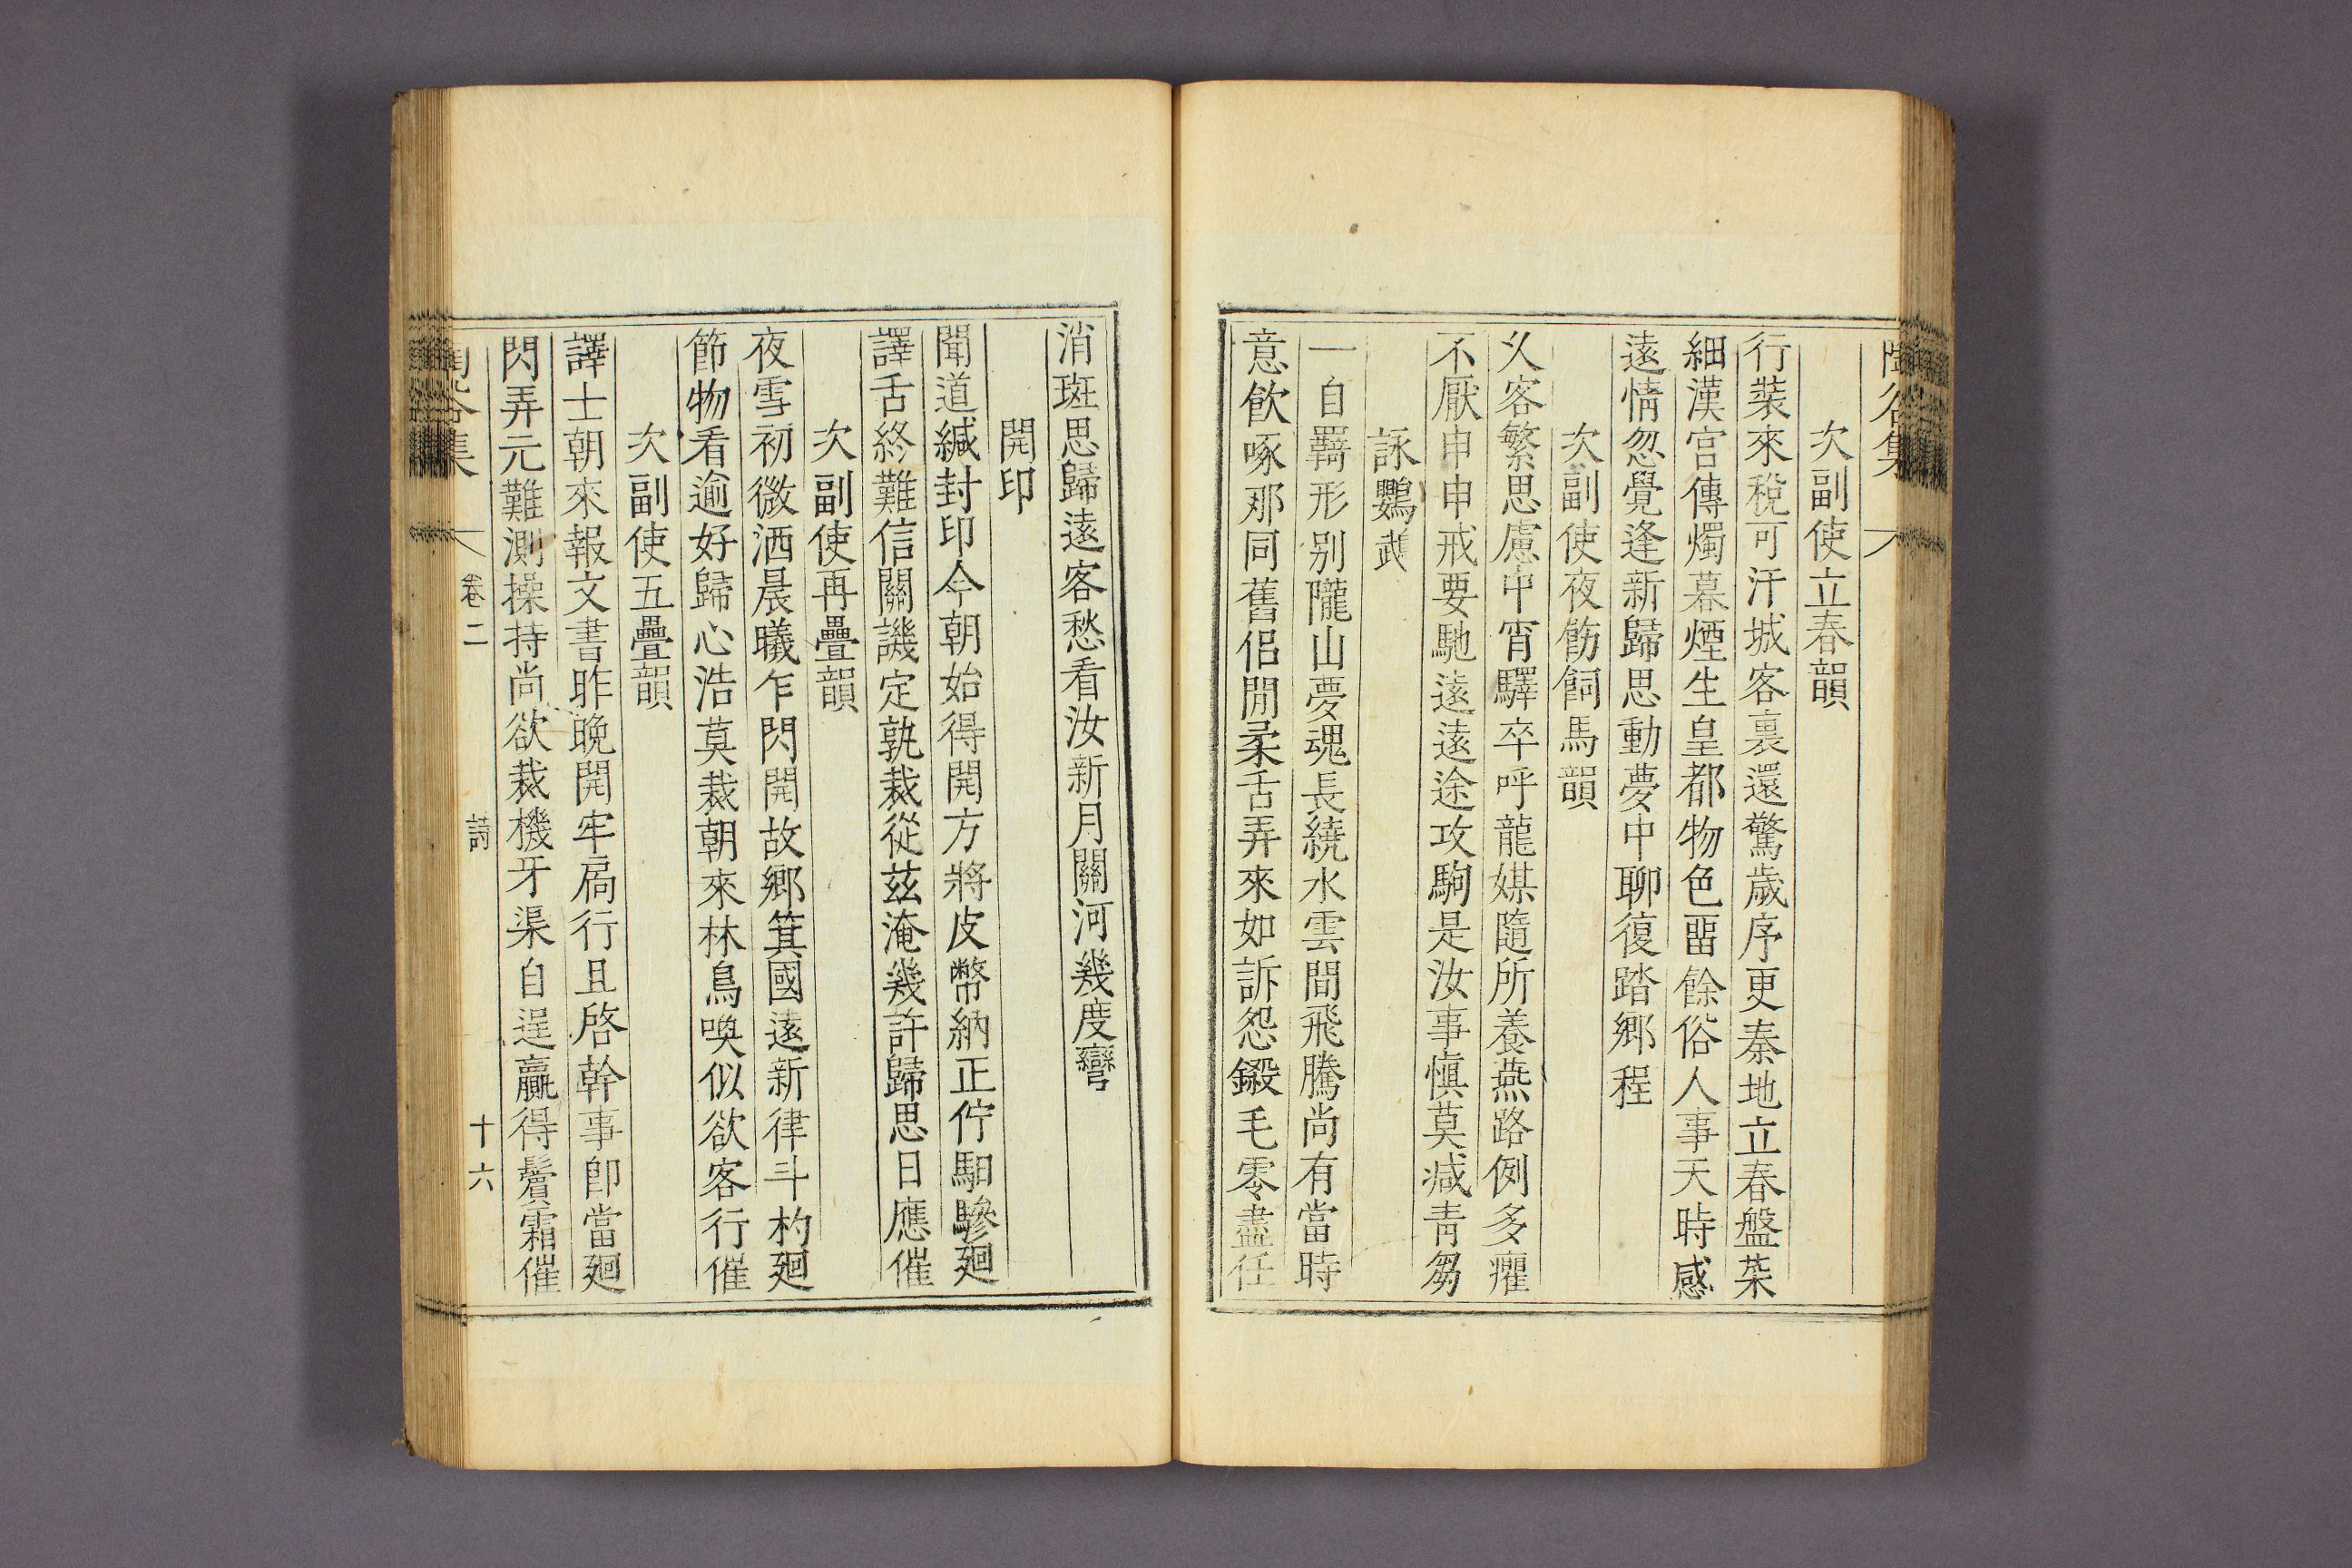 陶谷集
次副使立春韻
行裝來稅可汗城客裏還驚歲序更秦地立春盤菜
細漢宮傳燭暮煙生皇都物色畱餘俗人事天時感
遠情忽覺逢新歸思動夢中聊復踏鄕程
次副使夜飭飼馬韻
乆客繁思慮中宵驛卒呼龍媒隨所養燕路例多癯
不厭申申戒要馳遠遠途攻駒是汝事愼莫减靑芻
詠鸚䳇
一自羇形别隴山夢魂長繞水雲間飛騰尚有當時
意飮啄那同舊侶閒柔舌弄來如訴怨鎩毛零盡任
消斑思歸遠客愁看汝新月關河幾度彎
開印
聞道緘封印今朝始得開方將皮幣納正佇馹驂廻
譯舌終難信關譏定孰裁從兹淹幾許歸思日應催
次副使再疊韻
夜雪初微洒晨曦乍閃開故鄕箕國遠新律斗杓廻
節物看逾好歸心浩莫裁朝來林鳥喚似欲客行催
次副使五疊韻
譯士朝來報文書昨晚開牢扃行且啓幹事卽當廻
閃弄元難測操持尚欲裁機牙渠自逞贏得鬢霜催
陶谷集 卷二 詩 十六